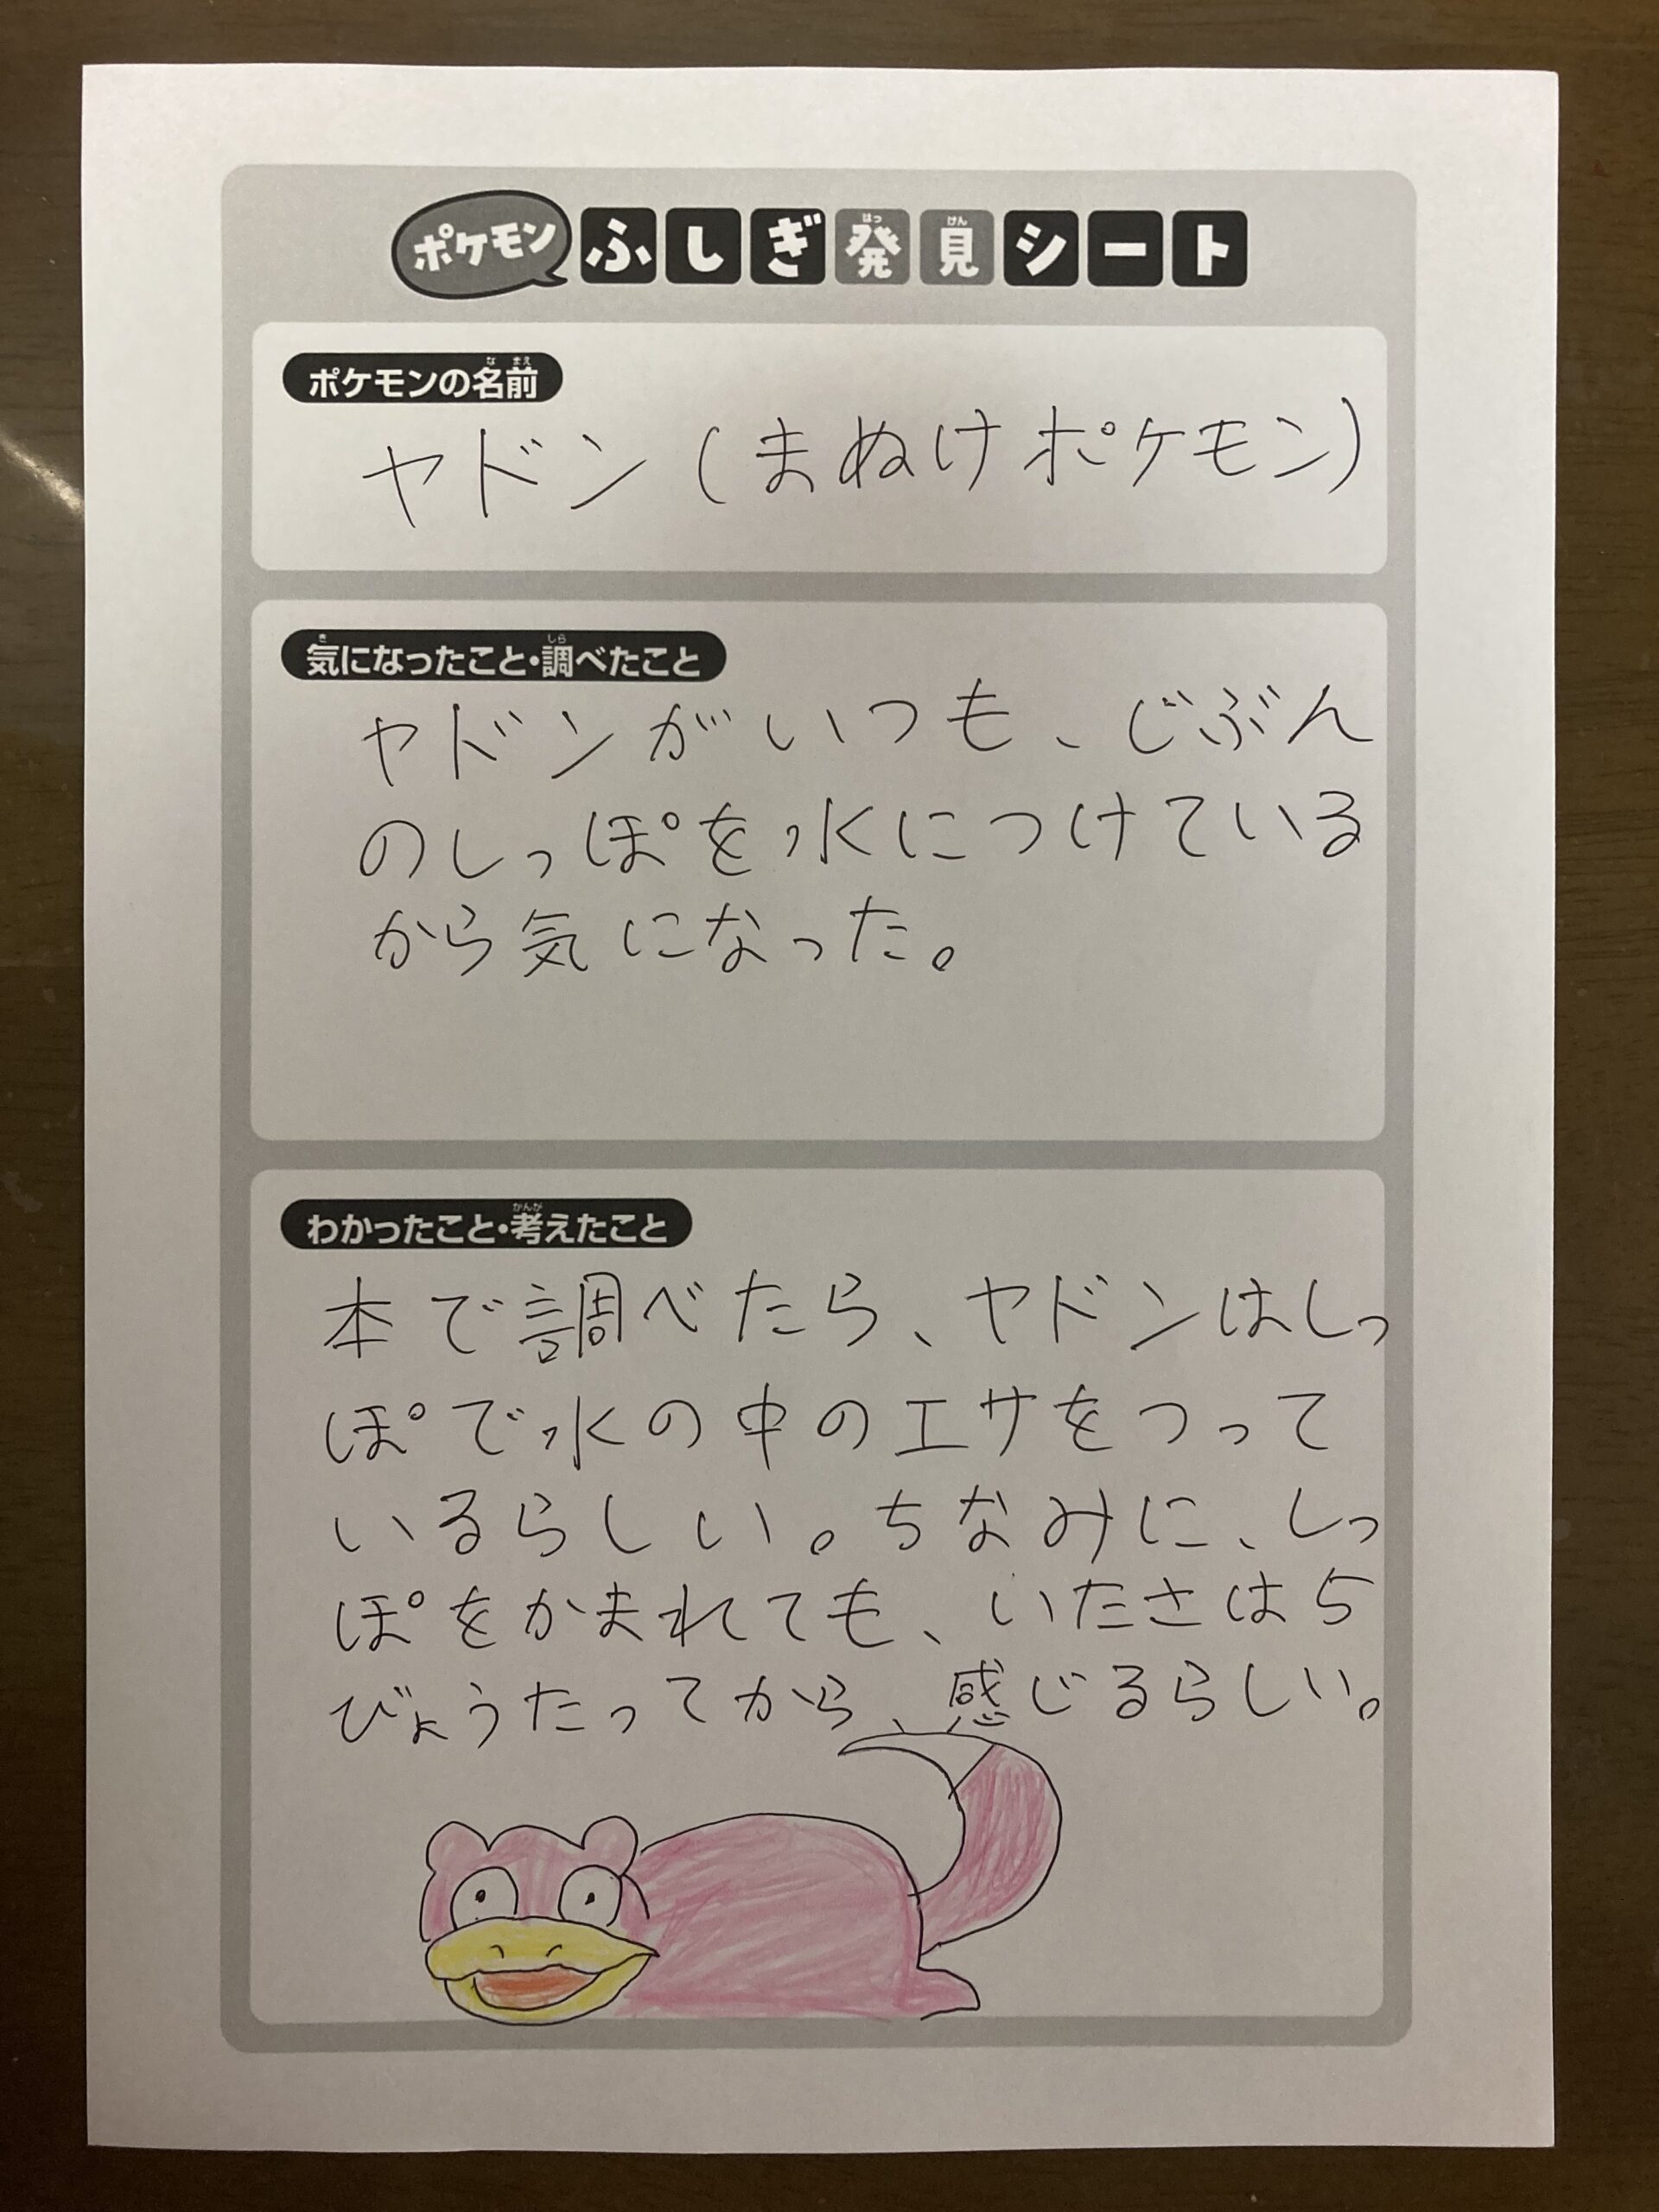 ポケモン ふしぎ発見シート
ポケモンの名前
ヤドン(まぬけポケモン)
気になったこと・調べたこと
ヤドンがいつも、じぶん
のしっぽを水につけている
から気になった。
わかったこと・考えたこと
本で調べたら、ヤドンはしっ
ぽで水の中のエサをつって
いるらしい。ちなみに、しっ
ぽをかまれても、いたさは5
びょうたってから、感じるらしい。